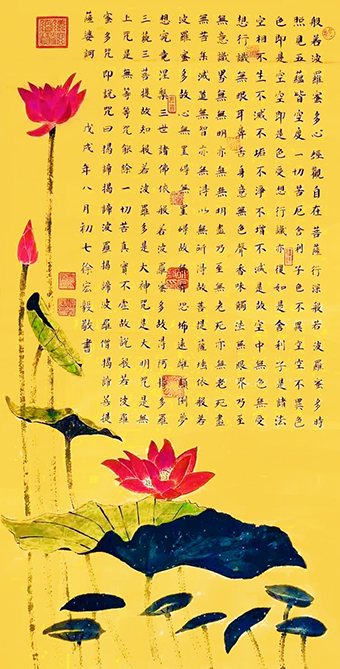 般若波羅蜜多心經觀自在菩薩行深般若波羅蜜多時
照見五蘊皆空度一切苦厄舍利子色不異空空不異色
色即是空空即是色受想行識亦復如是舍利子是諸法
空相不生不滅不垢不淨不增不減是故空中無色無受
想行識無眼耳鼻舌身意無色聲香味觸法無眼界乃至
無意識界無無明亦無無明盡乃至無老死亦無老死盡
無苦集滅道無智亦無得以無所得故菩提薩埵依般若
波羅蜜多故心無罣礙無罣礙故無有恐怖遠離顛倒夢
想究竟涅槃三世諸佛依般若波羅蜜多故得阿耨多羅
三藐三菩提故知般若波羅多是大神咒是大明咒是無
上咒是無等等咒能除一切苦真實不虛故說般若波羅
蜜多咒即說咒曰揭諦揭諦波羅揭諦波羅僧揭諦菩提
薩婆訶 戊戌年八月初七徐宏毅敬書